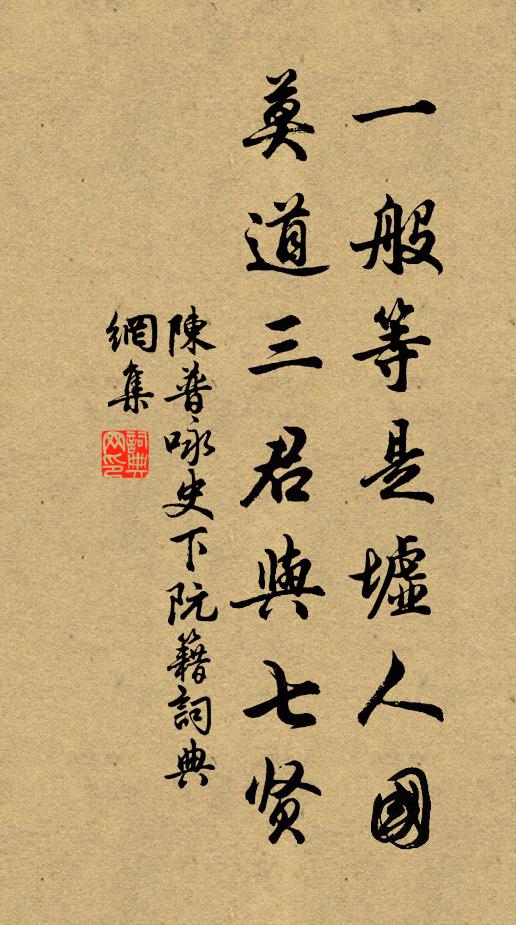 一般等是墟人國
莫道三君與七贤
陳普咏史下阮籍詞典
網集
詞典网印